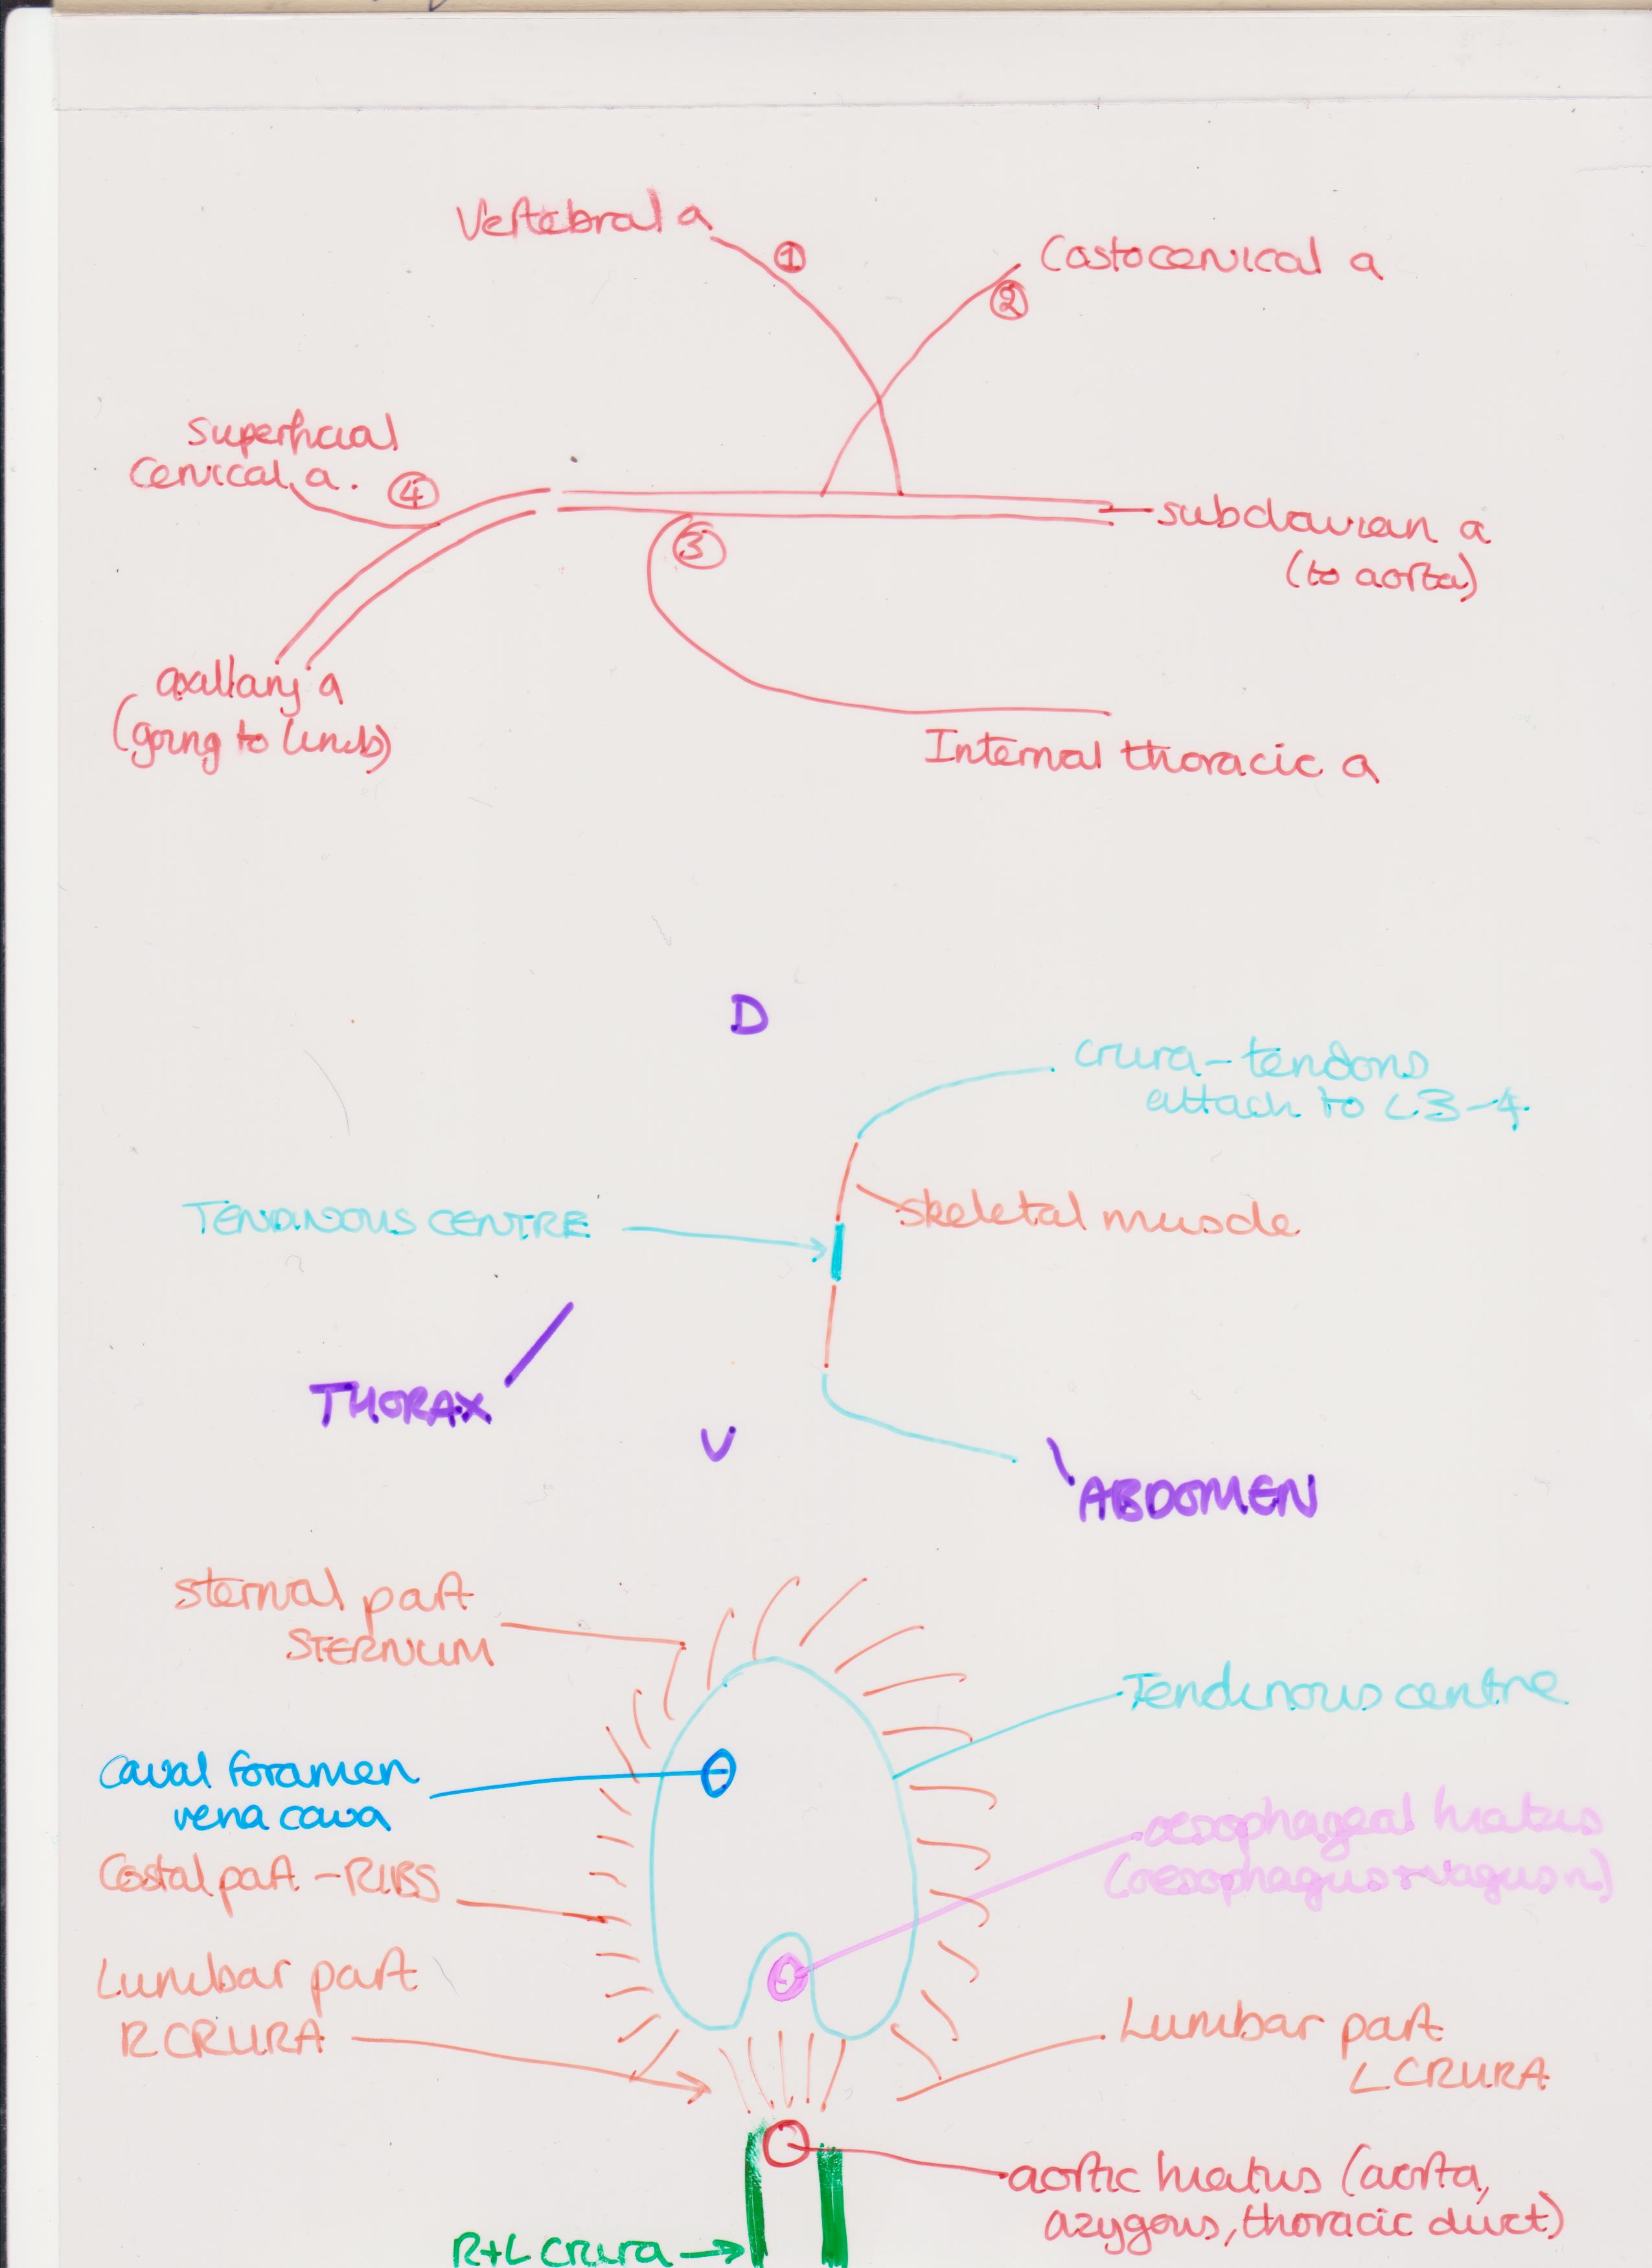 Vertebral a
①
Costocervical a
②
Superficial
Cervical a.
④
③
subclavian a
(to aorta)
axillary a
(going to limb)
Internal thoracic a
D
crura - tendons
attach to L3-4
TENDINOUS CENTRE
skeletal muscle
THORAX
V
ABDOMEN
sternal part
STERNUM
Tendinous centre
Caval foramen
vena cava
oesophageal hiatus
(oesophagus + vagus n)
Costal part - RIBS
Lumbar part
R CRURA
Lumbar part
L CRURA
aortic hiatus (aorta,
azygous, thoracic duct)
R+L crura